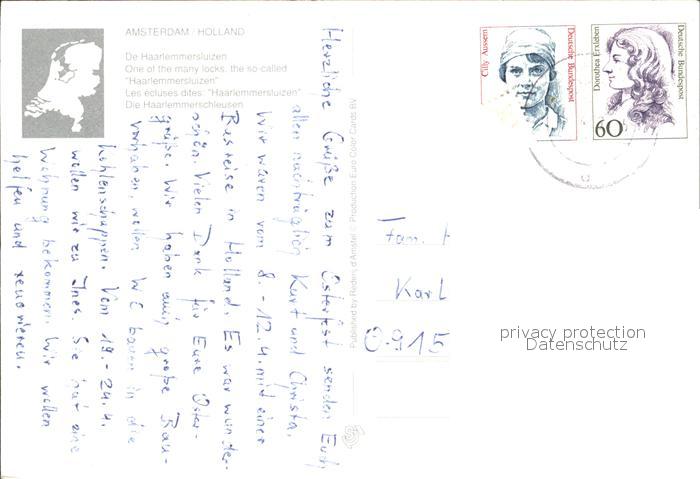 AMSTERDAM / HOLLAND
De Haarlemmersluizen
One of the many locks, the so-called
"Haarlemmersluizen"
Les écluses dites: "Haarlemmersluizen"
Die Haarlemmerschleusen
Herzliche Grüße zum Osterfest senden Euch
allen nachträglich Kurt und Christa.
Wir waren vom 8. - 12.4. mit einer
Busreise in Holland. Es war wunder-
schön. Vielen Dank für Eure Oster-
grüße. Wir haben große Bau-
vorhaben, wollen WC bauen in die
Kohlenschuppen. Vom 19. - 24.4.
wollen wir zu Ines. Sie hat eine
Wohnung bekommen. Wir wollen
helfen und renovieren.
Published by Reders d'Amstel © Production Euro Color Cards BV
Cilly Aussem
Deutsche Bundespost
Dorothea Erxleben
Deutsche Bundespost
60
Fam.
Karl
O-915
privacy protection
Datenschutz